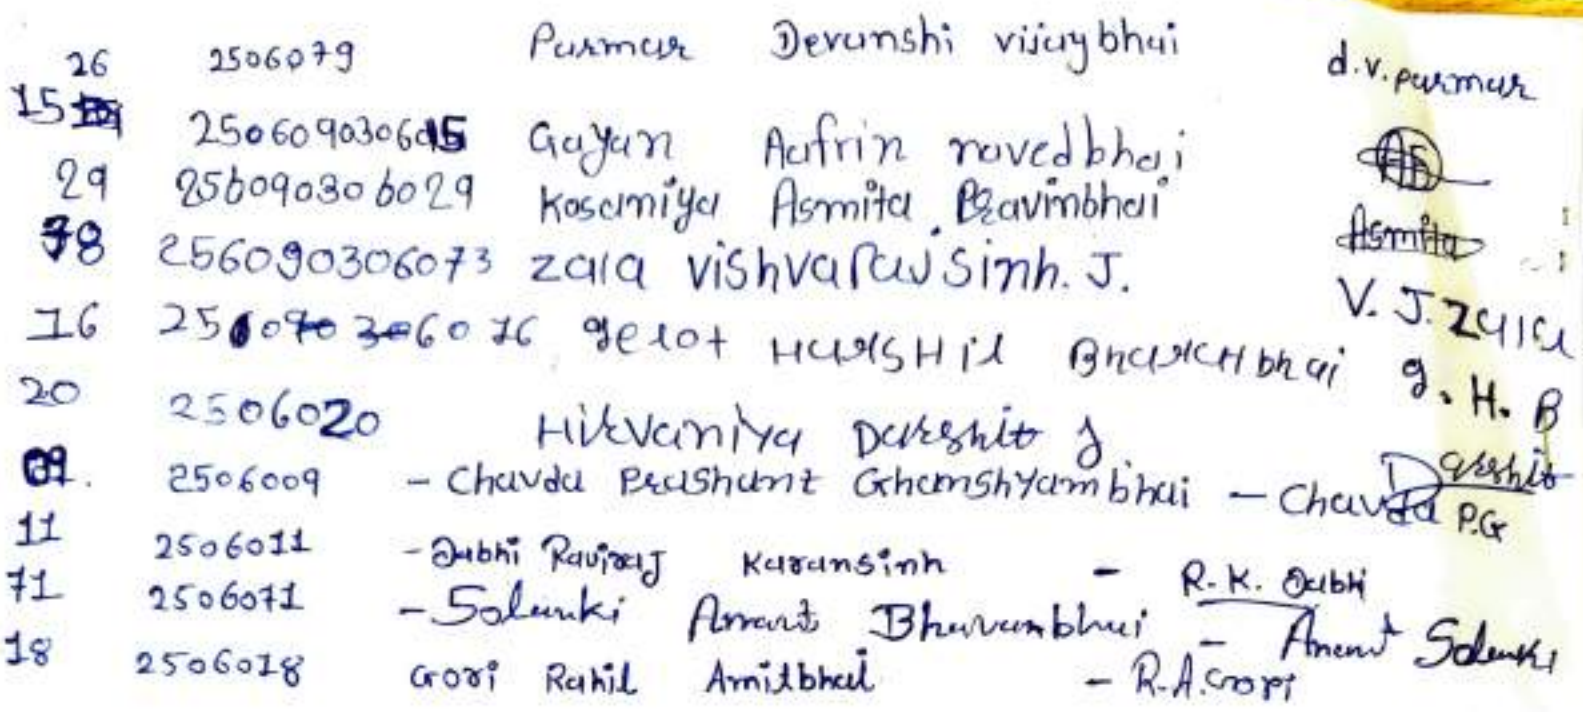 26 2506079 Parmar Devanshi vijaybhai d.v.parmar
15 2506090306015 Gayan Aafrin navedbhai
29 256090306029 Kosamiya Asmita Pravinbhai Asmita
78 256090306073 zala vishvarajsinh. J. V. J. zala
16 256090306016 gelot HARSHil BharatHbhai g. H. B
20 2506020 Hirvaniya Darshit J Darshit
09. 2506009 - Chavda Prashant Ghanshyambhai - Chavda P.G
11 2506011 - Dabhi Raviraj Karansinh - R.K. Dabhi
71 2506071 - Solanki Anant Bhavanbhai - Anant Solanki
18 2506018 Gori Rahil Amitbhai - R.A.Gori